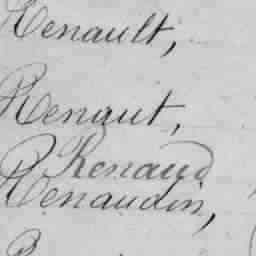 Renault,
Renaut,
Renaud
Renaudin,